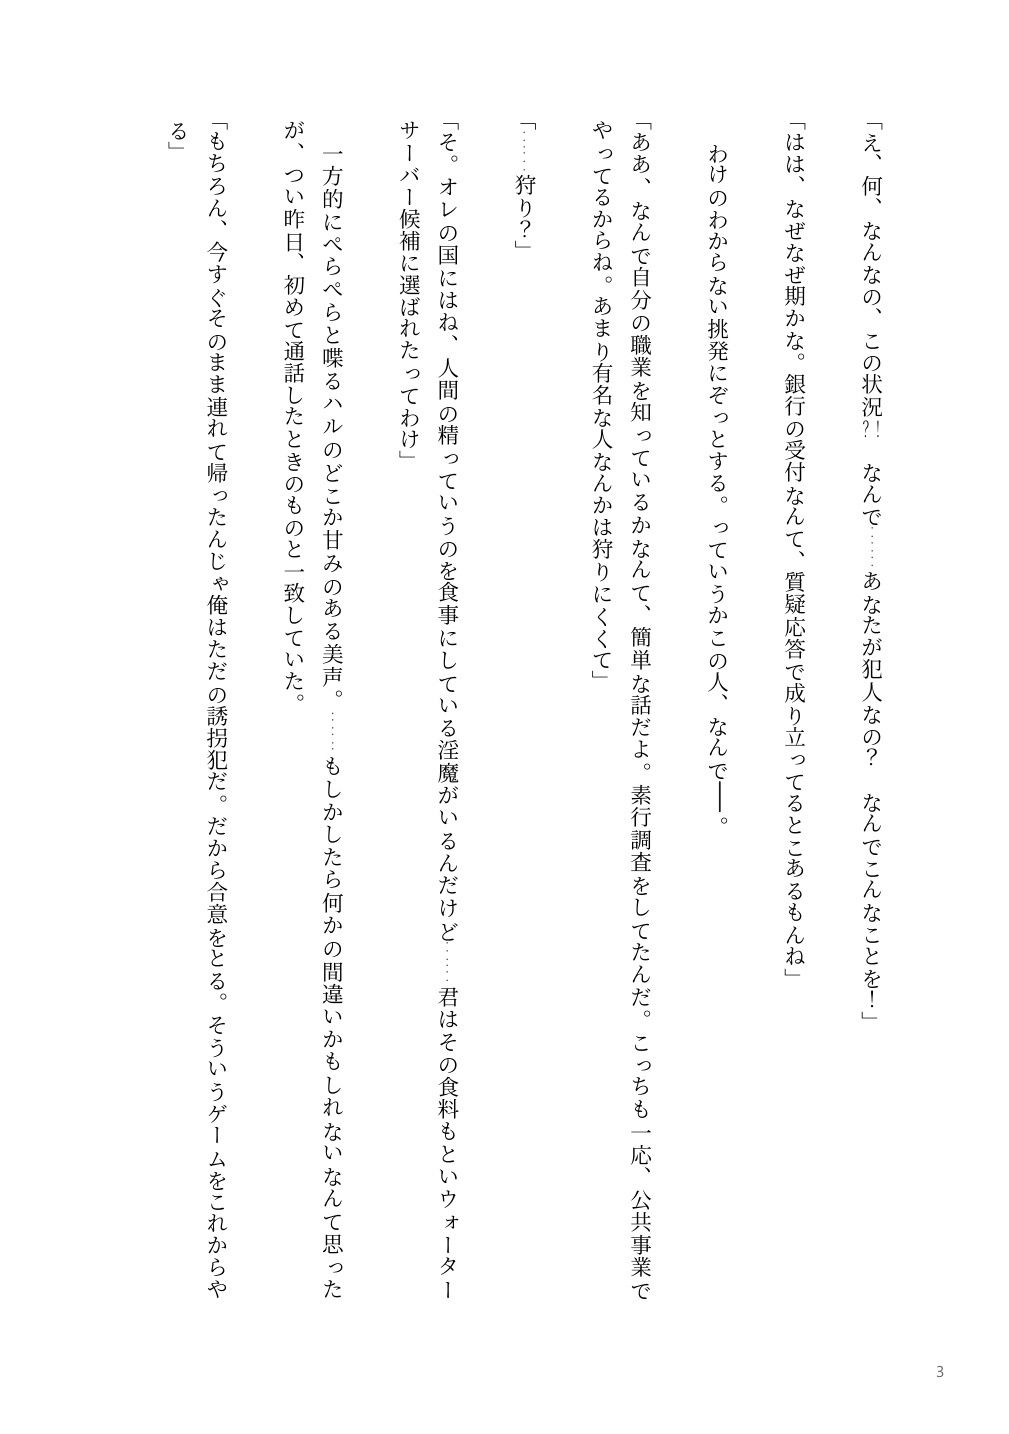 「え、何、なんなの、この状況?!　なんで……あなたが犯人なの？　なんでこんなことを！」
「はは、なぜなぜ期かな。銀行の受付なんて、質疑応答で成り立ってるとこあるもんね」
　わけのわからない挑発にぞっとする。っていうかこの人、なんで――。
「ああ、なんで自分の職業を知っているかなんて、簡単な話だよ。素行調査をしてたんだ。こっちも一応、公共事業で
やってるからね。あまり有名な人なんかは狩りにくくて」
「……狩り？」
「そ。オレの国にはね、人間の精っていうのを食事にしている淫魔がいるんだけど……君はその食料もといウォーター
サーバー候補に選ばれたってわけ」
　一方的にぺらぺらと喋るハルのどこか甘みのある美声。……もしかしたら何かの間違いかもしれないなんて思った
が、つい昨日、初めて通話したときのものと一致していた。
「もちろん、今すぐそのまま連れて帰ったんじゃ俺はただの誘拐犯だ。だから合意をとる。そういうゲームをこれからや
る」
3